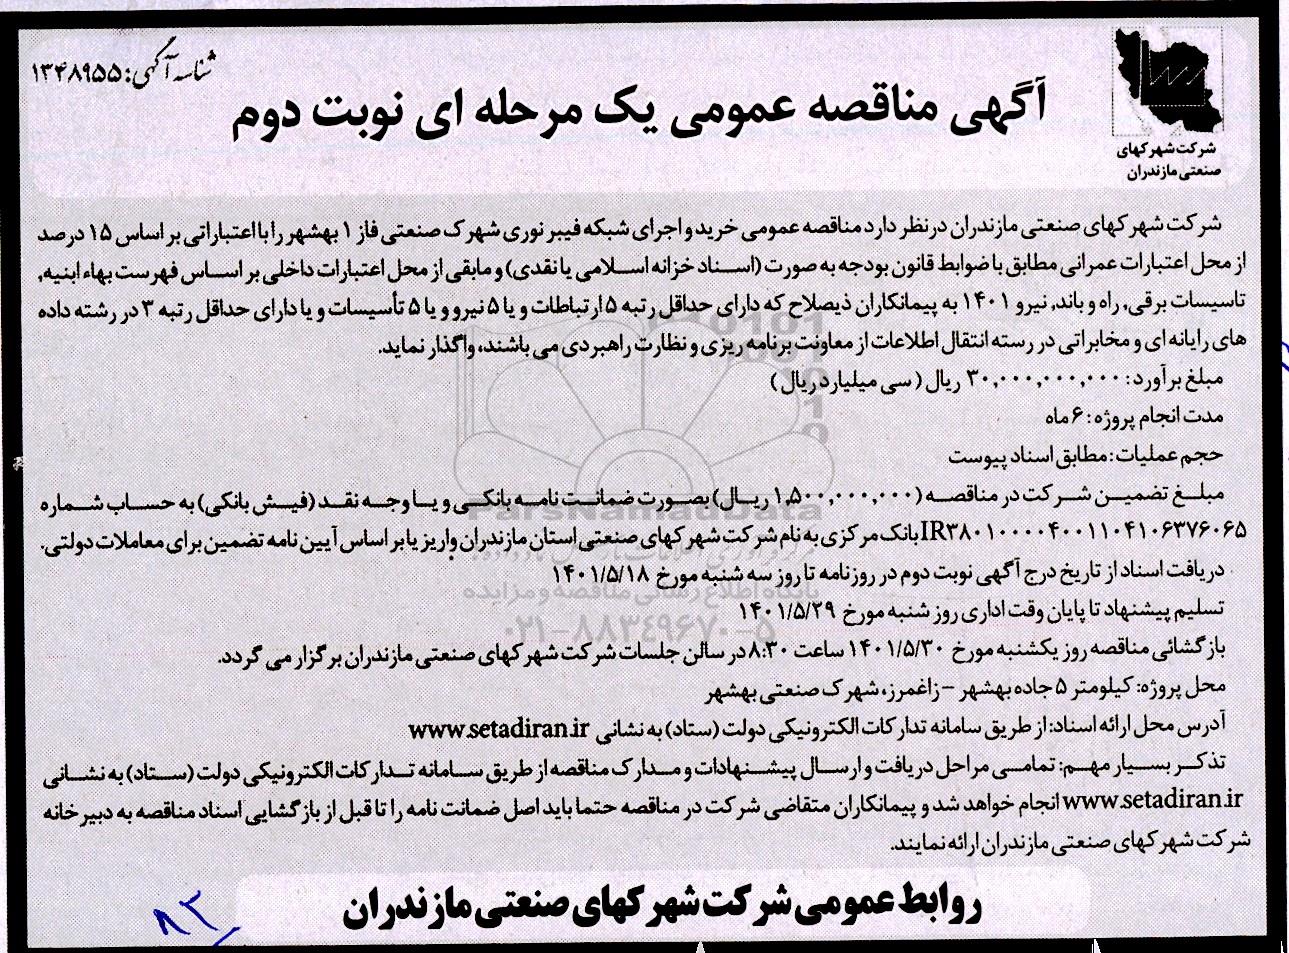 شناسه آگهی: ۱۳۴۸۹۵۵
آگهی مناقصه عمومی یک مرحله ای نوبت دوم
شرکت شهرکهای
صنعتی مازندران
شرکت شهرکهای صنعتی مازندران درنظر دارد مناقصه عمومی خرید و اجرای شبکه فیبر نوری شهرک صنعتی فاز ۱ بهشهر را با اعتباراتی بر اساس ۱۵ درصد
از محل اعتبارات عمرانی مطابق با ضوابط قانون بودجه به صورت (اسناد خزانه اسلامی یا نقدی) و مابقی از محل اعتبارات داخلی بر اساس فهرست بهاء ابنیه,
تاسیسات برقی, راه و باند, نیرو ۱۴۰۱ به پیمانکاران ذیصلاح که دارای حداقل رتبه ۵ ارتباطات و یا ۵ نیرو و یا ۵ تأسیسات و یا دارای حداقل رتبه ۳ در رشته داده
های رایانه ای و مخابراتی در رسته انتقال اطلاعات از معاونت برنامه ریزی و نظارت راهبردی می باشند، واگذار نماید.
مبلغ برآورد: ۳۰,۰۰۰,۰۰۰,۰۰۰ ریال (سی میلیارد ریال)
مدت انجام پروژه: ۶ ماه
حجم عملیات: مطابق اسناد پیوست
مبلغ تضمین شرکت در مناقصه (۱,۵۰۰,۰۰۰,۰۰۰ ریال) بصورت ضمانت نامه بانکی و یا وجه نقد (فیش بانکی) به حساب شماره
IR۳۸۰۱۰۰۰۰۴۰۰۱۱۰۴۱۰۶۳۷۶۰۶۵ بانک مرکزی به نام شرکت شهرکهای صنعتی استان مازندران واریز یا بر اساس آیین نامه تضمین برای معاملات دولتی.
دریافت اسناد از تاریخ درج آگهی نوبت دوم در روزنامه تا روز سه شنبه مورخ ۱۴۰۱/۵/۱۸
تسلیم پیشنهاد تا پایان وقت اداری روز شنبه مورخ ۱۴۰۱/۵/۲۹
بازگشائی مناقصه روز یکشنبه مورخ ۱۴۰۱/۵/۳۰ ساعت ۸:۳۰ در سالن جلسات شرکت شهرکهای صنعتی مازندران برگزار می گردد.
محل پروژه: کیلومتر ۵ جاده بهشهر - زاغمرز، شهرک صنعتی بهشهر
آدرس محل ارائه اسناد: از طریق سامانه تدارکات الکترونیکی دولت (ستاد) به نشانی www.setadiran.ir
تذکر بسیار مهم: تمامی مراحل دریافت و ارسال پیشنهادات و مدارک مناقصه از طریق سامانه تدارکات الکترونیکی دولت (ستاد) به نشانی
www.setadiran.ir انجام خواهد شد و پیمانکاران متقاضی شرکت در مناقصه حتما باید اصل ضمانت نامه را تا قبل از بازگشایی اسناد مناقصه به دبیرخانه
شرکت شهرکهای صنعتی مازندران ارائه نمایند.
روابط عمومی شرکت شهرکهای صنعتی مازندران
ParsNamadData
پایگاه اطلاع رسانی مناقصه و مزایده
۰۲۱-۸۸۳۴۹۶۷۰-۵
۸۲